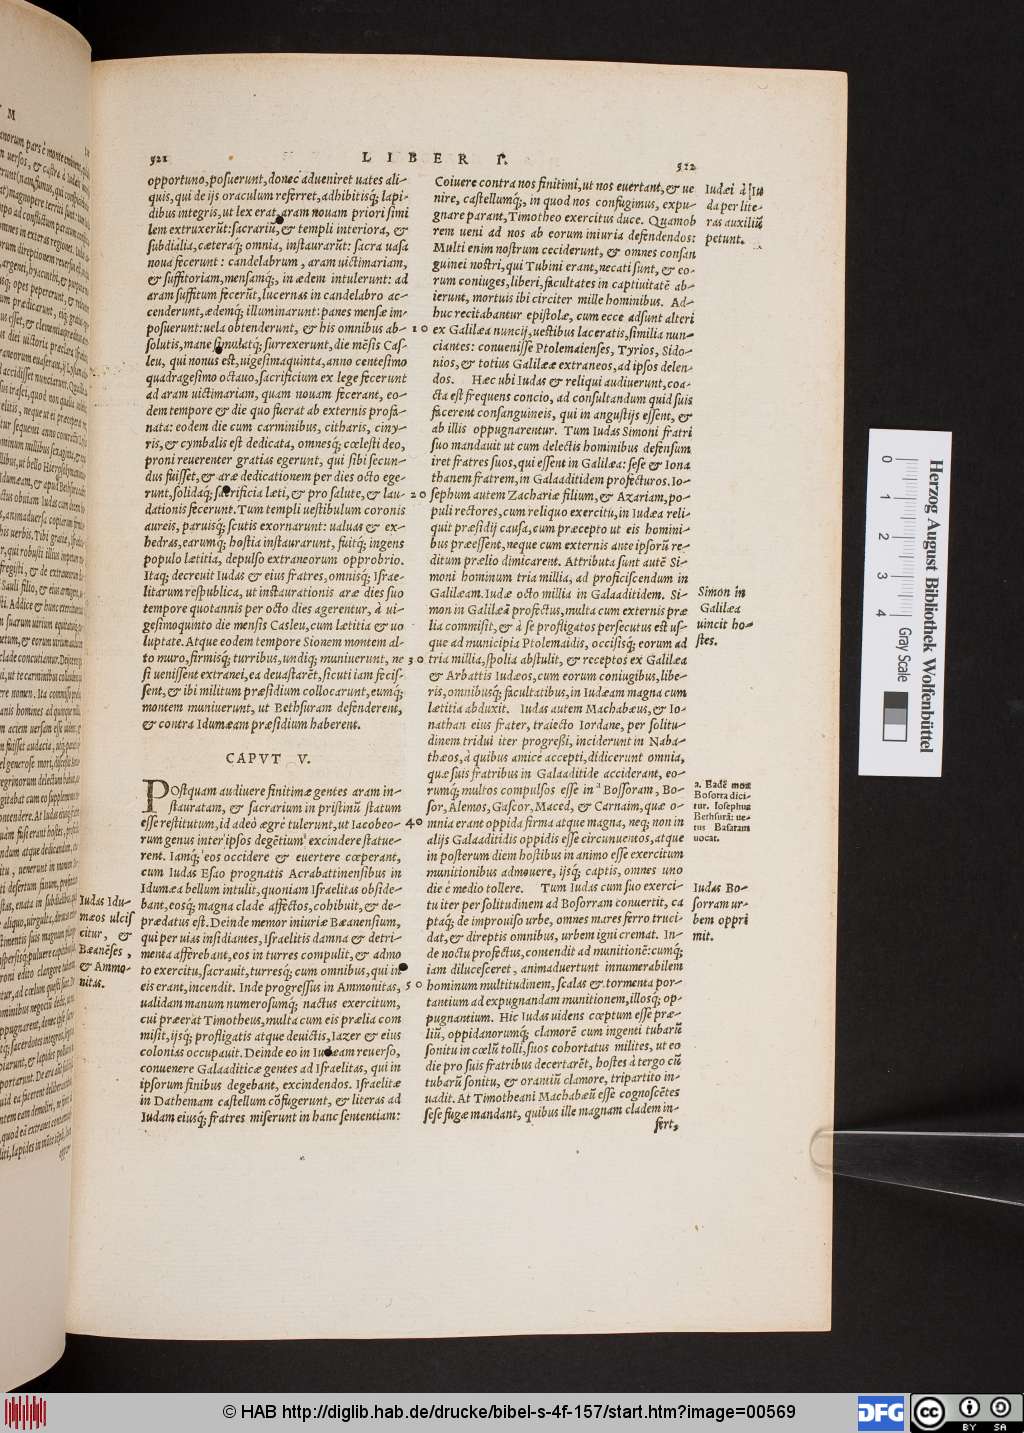 521
LIBER I.
522
opportuno, posuerunt, donec adueniret uates ali-
quis, qui de ijs oraculum referret, adhibitisq; lapi-
dibus integris, ut lex erat, aram nouam priori simi
lem extruxerũt: sacrariũ, & templi interiora, &
subdialia, cæteraq; omnia, instaurarũt: sacra uasa
noua fecerunt: candelabrum, aram uictimariam,
& suffitoriam, mensamq;, in ædem intulerunt: ad
aram suffitum fecerũt, lucernas in candelabro ac-
cenderunt, ædemq; illuminarunt: panes mensæ im-
posuerunt: uela obtenderunt, & his omnibus ab-
solutis, mane simulatq; surrexerunt, die mẽsis Cas-
leu, qui nonus est, uigesimaquinta, anno centesimo
quadragesimo octauo, sacrificium ex lege fecerunt
ad aram uictimariam, quam nouam fecerant, eo-
dem tempore & die quo fuerat ab externis profa-
nata: eodem die cum carminibus, citharis, ciny-
ris, & cymbalis est dedicata, omnesq; cœlesti deo,
proni reuerenter gratias egerunt, qui sibi secun-
dus fuisset, & aræ dedicationem per dies octo ege-
runt, solidaq; sacrificia læti, & pro salute, & lau-
dationis fecerunt. Tum templi uestibulum coronis
aureis, paruisq; scutis exornarunt: ualuas & ex-
hedras, earumq; hostia instaurarunt, fuitq; ingens
populo lætitia, depulso extraneorum opprobrio.
Itaq; decreuit Iudas & eius fratres, omnisq; Israe-
litarum respublica, ut instaurationis aræ dies suo
tempore quotannis per octo dies agerentur, à ui-
gesimoquinto die mensis Casleu, cum lætitia & uo
luptate. Atque eodem tempore Sionem montem al-
to muro, firmisq; turribus, undiq; muniuerunt, ne
si uenissent extranei, ea deuastarẽt, sicuti iam fecis-
sent, & ibi militum præsidium collocarunt, eumq;
montem muniuerunt, ut Bethsuram defenderent,
& contra Idumæam præsidium haberent.
CAPVT V.
POstquam audiuere finitimæ gentes aram in-
stauratam, & sacrarium in pristinũ statum
esse restitutum, id adeò ægrè tulerunt, ut Iacobeo-
rum genus inter ipsos degẽtium excindere statue-
rent. Iamq; eos occidere & euertere cœperant,
cum Iudas Esao prognatis Acrabattinensibus in
Idumæa bellum intulit, quoniam Israelitas obside-
bant, eosq; magna clade affectos, cohibuit, & de-
prædatus est. Deinde memor iniuriæ Bæanensium,
qui per uias insidiantes, Israelitis damna & detri-
menta afferebant, eos in turres compulit, & admo
to exercitu, sacrauit, turresq; cum omnibus, qui in
eis erant, incendit. Inde progressus in Ammonitas,
ualidam manum numerosumq; nactus exercitum,
cui præerat Timotheus, multa cum eis prælia com
misit, ijsq; profligatis atque deuictis, Iazer & eius
colonias occupauit. Deinde eo in Iudæam reuerso,
conuenere Galaaditicæ gentes ad Israelitas, qui in
ipsorum finibus degebant, excindendos. Israelitæ
in Dathemam castellum cõfugerunt, & literas ad
Iudam eiusq; fratres miserunt in hanc sententiam:
Iudas Idu-
mæos ulcis
citur, &
Bæanẽses,
& Ammo-
nitas.
10
20
30
40
50
Coiuere contra nos finitimi, ut nos euertant, & ue
nire, castellumq;, in quod nos confugimus, expu-
gnare parant, Timotheo exercitus duce. Quamob
rem ueni ad nos ab eorum iniuria defendendos:
Multi enim nostrum ceciderunt, & omnes consan
guinei nostri, qui Tubini erant, necati sunt, & eo-
rum coniuges, liberi, facultates in captiuitatẽ ab-
ierunt, mortuis ibi circiter mille hominibus. Ad-
huc recitabantur epistolæ, cum ecce adsunt alteri
ex Galilæa nuncij, uestibus laceratis, similia nun-
ciantes: conuenisse Ptolemaienses, Tyrios, Sido-
nios, & totius Galilææ extraneos, ad ipsos delen-
dos. Hæc ubi Iudas & reliqui audiuerunt, coa-
cta est frequens concio, ad consultandum quid suis
facerent consanguineis, qui in angustijs essent, &
ab illis oppugnarentur. Tum Iudas Simoni fratri
suo mandauit ut cum delectis hominibus defensum
iret fratres suos, qui essent in Galilæa: sese & Iona
thanem fratrem, in Galaaditidem profecturos. Io-
sephum autem Zachariæ filium, & Azariam, po-
puli rectores, cum reliquo exercitu, in Iudæa reli-
quit præsidij causa, cum præcepto ut eis homini-
bus præessent, neque cum externis ante ipsorũ re-
ditum prælio dimicarent. Attributa sunt autẽ Si-
moni hominum tria millia, ad proficiscendum in
Galilæam. Iudæ octo millia in Galaaditidem. Si-
mon in Galilæã profectus, multa cum externis præ
lia commisit, & à se profligatos persecutus est us-
que ad municipia Ptolemaidis, occisisq; eorum ad
tria millia, spolia abstulit, & receptos ex Galilæa
& Arbattis Iudæos, cum eorum coniugibus, libe-
ris, omnibusq; facultatibus, in Iudæam magna cum
lætitia abduxit. Iudas autem Machabæus, & Io-
nathan eius frater, traiecto Iordane, per solitu-
dinem tridui iter progreßi, inciderunt in Naba-
thæos, à quibus amicè accepti, didicerunt omnia,
quæ suis fratribus in Galaaditide acciderant, eo-
rumq; multos compulsos esse in a Bossoram, Bo-
sor, Alemos, Gascor, Maced, & Carnaim, quæ o-
mnia erant oppida firma atque magna, neq; non in
alijs Galaaditidis oppidis esse circunuentos, atque
in posterum diem hostibus in animo esse exercitum
munitionibus admouere, ijsq; captis, omnes uno
die è medio tollere. Tum Iudas cum suo exerci-
tu iter per solitudinem ad Bosorram conuertit, ca
ptaq; de improuiso urbe, omnes mares ferro truci-
dat, & direptis omnibus, urbem igni cremat. In-
de noctu profectus, contendit ad munitionẽ: cumq;
iam dilucesceret, animaduertunt innumerabilem
hominum multitudinem, scalas & tormenta por-
tantium ad expugnandam munitionem, illosq; op-
pugnantium. Hic Iudas uidens cœptum esse præ-
liũ, oppidanorumq; clamorẽ cum ingenti tubarũ
sonitu in cœlũ tolli, suos cohortatus milites, ut eo
die pro suis fratribus decertarẽt, hostes à tergo cũ
tubarũ sonitu, & orantiũ clamore, tripartito in-
uadit. At Timotheani Machabæũ esse cognoscẽtes
sese fugæ mandant, quibus ille magnam cladem in-
fert,
Iudæi à Iu
da per lite-
ras auxiliũ
petunt.
Simon in
Galilæa
uincit ho-
stes.
a. Eadẽ mox
Bosorra dici-
tur. Iosephus
Bethsurã: ue-
tus Basaram
uocat.
Iudas Bo-
sorram ur-
bem oppri
mit.
0 1 2 3 4
Gray Scale
Herzog August Bibliothek Wolfenbüttel
© HAB http://diglib.hab.de/drucke/bibel-s-4f-157/start.htm?image=00569
DFG
cc BY SA